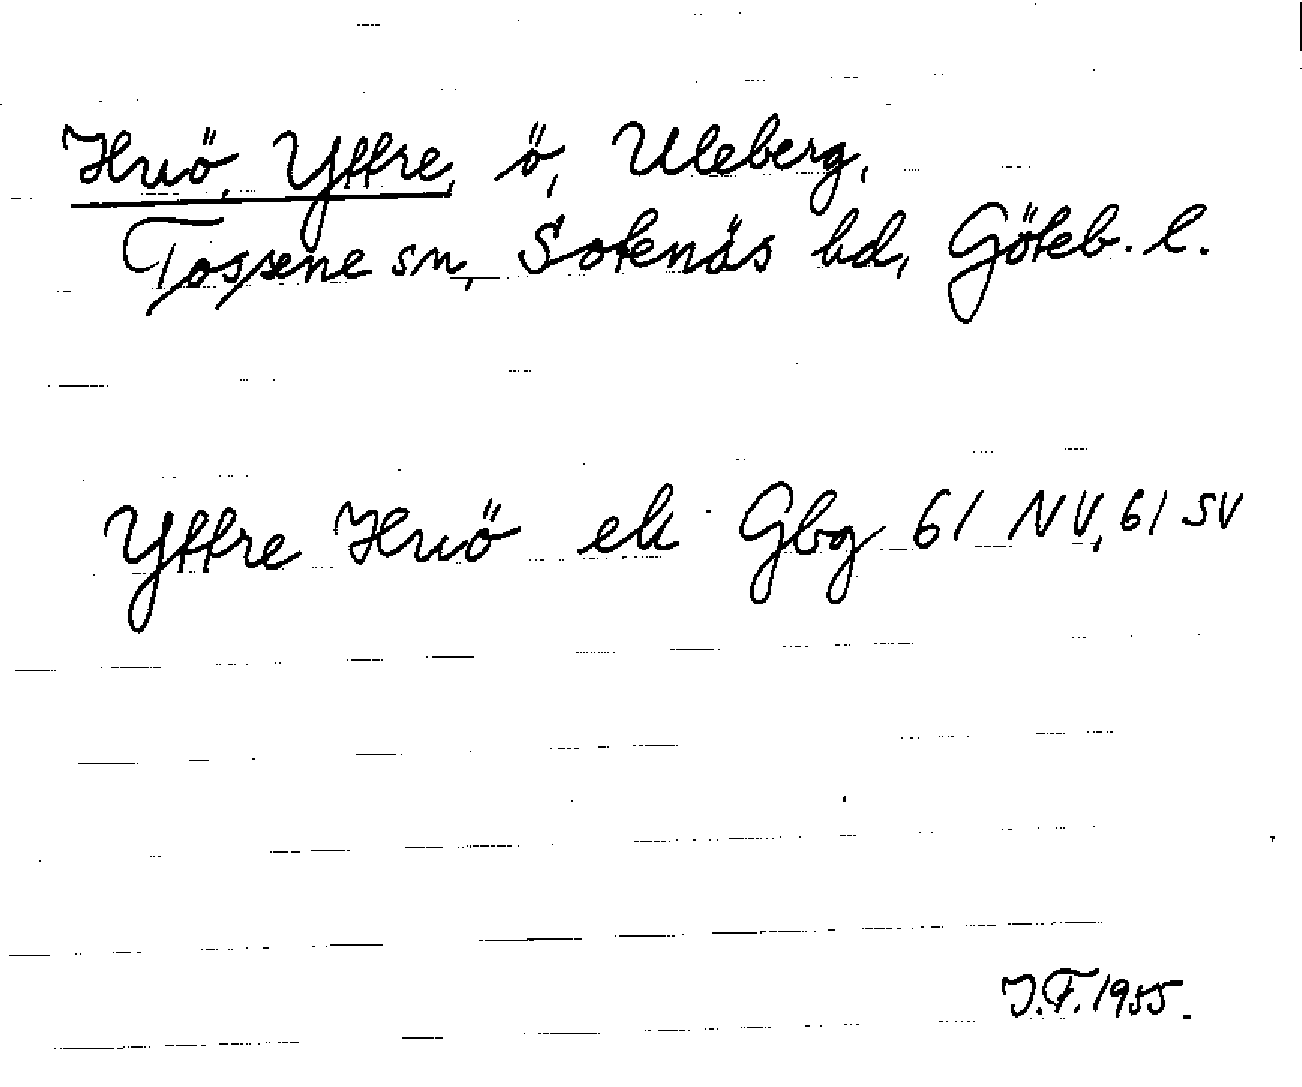 Huvö, Yffre, ö, Uleberg,
Tossene sn, Sotenäs hd, Göteb. l.
Yffre Huvö ek Gbg 61 NV, 61 SV
J.F. 1955.